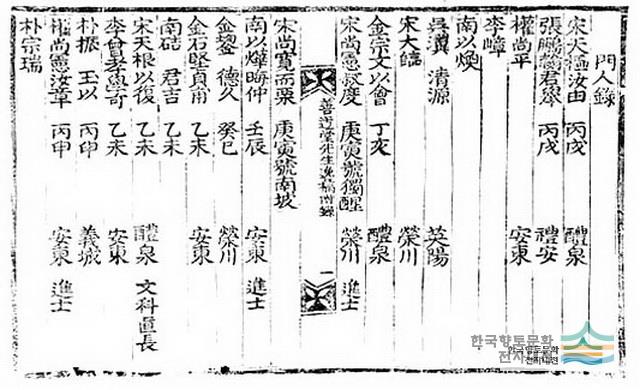 門人錄
宋天樞汝由 丙戌 醴泉
張鵬翥君擧 丙戌 禮安
權尚平 安東
李嶂
南以煥
吳瀷 清源 英陽
宋大 榮川
金宗文以會 丁亥 醴泉
宋尚憲叔度 庚寅號獨醒 榮川 進士
善迃堂先生逸稿附錄 一
宋尚寬而栗 庚寅號南坡
南以燁晦仲 壬辰 安東 進士
金鋈 德久 癸巳 榮川
金石堅貞甫 安東
南硈 君吉 乙未
宋天根以復 乙未 醴泉 文科直長
李會 魯奇 乙未 安東
朴振 玉以 丙申 義城
權尚憲汝章 丙申 安東 進士
朴宗瑞
한국향토문화
전자대전
한국향토문화
전자대전